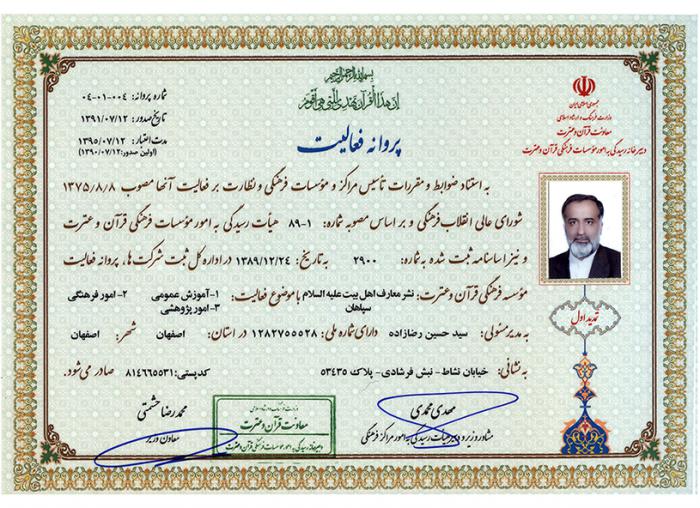 بسم الله الرحمن الرحیم
ان هذا القرآن یهدی للتی هی اقوم
جمهوری اسلامی ایران
وزارت فرهنگ و ارشاد اسلامی
معاونت قرآن و عترت
دبیرخانه رسیدگی به امور مؤسسات فرهنگی قرآن و عترت
شماره پروانه: ۰۴-۰۱-۰۰۴
تاریخ صدور: ۱۳۹۱/۰۷/۱۲
مدت اعتبار: ۱۳۹۵/۰۷/۱۲
(اولین صدور: ۱۳۹۰/۰۷/۱۲)
پروانه فعالیت
به استناد ضوابط و مقررات تأسیس مراکز و مؤسسات فرهنگی و نظارت بر فعالیت آنها مصوب ۱۳۷۵/۸/۸
شورای عالی انقلاب فرهنگی و بر اساس مصوبه شماره: ۱-۸۹ هیأت رسیدگی به امور مؤسسات فرهنگی قرآن و عترت
و نیز اساسنامه ثبت شده به شماره: ۲۹۰۰ به تاریخ: ۱۳۸۹/۱۲/۲۴ در اداره کل ثبت شرکت ها، پروانه فعالیت
مؤسسه فرهنگی قرآن و عترت: نشر معارف اهل بیت علیه السلام سپاهان با موضوع فعالیت: ۱-آموزش عمومی ۲-امور فرهنگی ۳-امور پژوهشی
به مدیر مسئولی: سید حسین رضازاده دارای شماره ملی: ۱۲۸۲۷۵۵۵۲۸ در استان: اصفهان شهر: اصفهان
به نشانی: خیابان نشاط- نبش فرشادی- پلاک ۵۳۴۳۵ کدپستی: ۸۱۴۶۶۵۵۳۱ صادر می شود.
تمدید اول
مهدی محمدی
مشاور وزیر و دبیر هیأت رسیدگی به امور مراکز فرهنگی
وزارت فرهنگ و ارشاد اسلامی
معاونت قرآن و عترت
دبیرخانه رسیدگی به امور مؤسسات فرهنگی قرآن و عترت
محمدرضا حشمتی
معاون وزیر